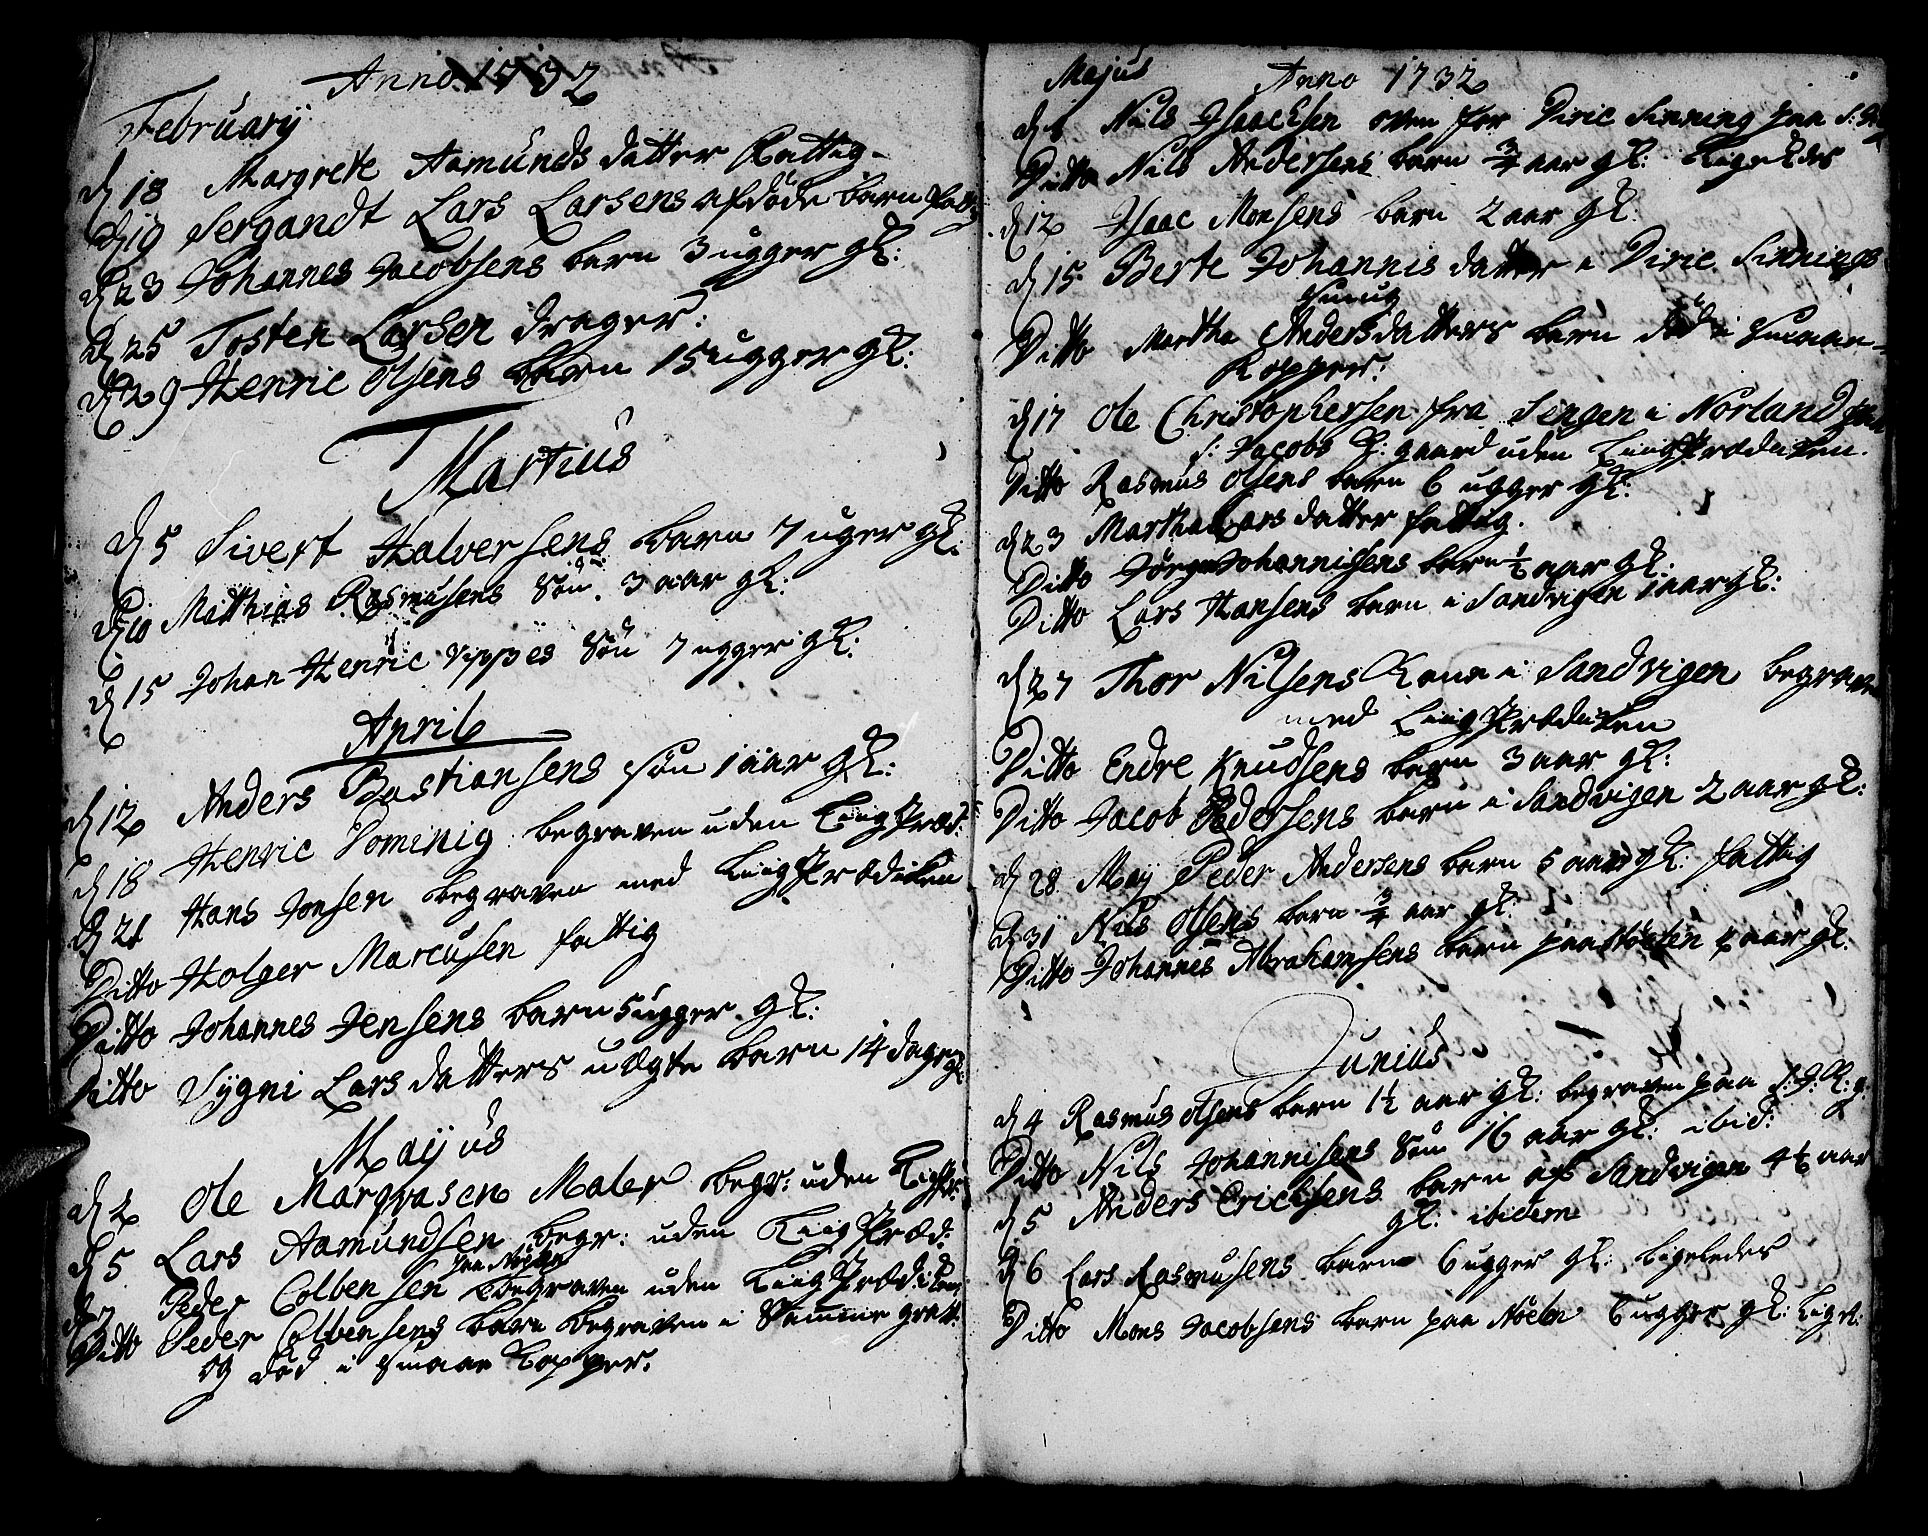 Anno 1732
February
d 18 Margrete Aamunds datter Fattig
d 19 Sergandt Lars Larsens afdøde barn fatt:
d 23 Johannes Jacobsens barn 3 ugger gl:
d 25 Tosten Larsen drager:
d 29 Henric Olsens barn 15 ugger gl:
Martius
d 5 Sivert Halversens barn 7 uger gl:
d 10 Mathias Rasmusens Søn 3 aar gl:
d 15 Johan Henric Søn 7 ugger gl:
April
d 12 Anders Bastiansens søn 1 aar gl:
d 18 Henric Dominig begraven uden Liigpræd:
d 21 Hans Jonsen begraven med Liigprædiken
Ditto Holger Marcusen fattig
Ditto Johannes Jensens barn 5 ugger gl:
Ditto Sygni Lars datters uægte barn 14 dage gl:
Maijus
d 2 Ole Marqvasen Maler begr: uden Ligpr:
d 5 Lars Aamundsen begr: uden Liigpræd:
paa Nøstet
d 7 Peder Colbensen begraven uden Liigprædiken
Ditto Peder Colbensens barn begraven i Samme graff:
og død i Smaae Kopper.
Majus Anno 1732
d Nils Isaachsen oven for Diric Sinning paa S:
Ditto Nils Andersens barn 3/4 aar gl: Ligeledes
d 12 Isaac Monsens barn 2 aar gl:
d 15 Berte Johannis datter i Diric Sinnings
Smug
Ditto Martha Andersdatters barn død i Smaae
Kopper:
d 17 Ole Christophersen fra Sengen i Norland paa
S: Jacobs K: gaard uden Liigprædiken.
Ditto Rasmus Olsens barn 6 ugger gl:
d 23 Martha Lars datter fattig.
Ditto Jørgen Johannisens barn 1/2 aar gl:
Ditto Lars Hansens barn i Sandvigen 1 aar gl:
d 27 Thor Nilsens Kone i Sandvigen begraven
med Liigprædiken
Ditto Endre Knudsens barn 3 aar gl:
Ditto Jacob Pedersens barn i Sandvigen 2 aar gl:
d 28 Maij Peder Andersens barn 5 aar gl: fattig
d 31 Nils Olsens barn 3/4 aar gl:
Ditto Johannes Abrahamsens barn paa Nøsten aar gl:
Junius
d 4 Rasmus Olsens barn 1 1/2 aar gl: begraven paa S: J: K: g.
Ditto Nils Johannisens Søn 16 aar gl: ibid:
d 5 Anders Erichsens barn af Sandvigen 4 1/2 aar
gl: ibidem
d 6 Lars Rasmusens barn 6 ugger gl: ligeledes
Ditto Mons Jacobsens barn paa Nøstn 6 ugger gl: Ligel: